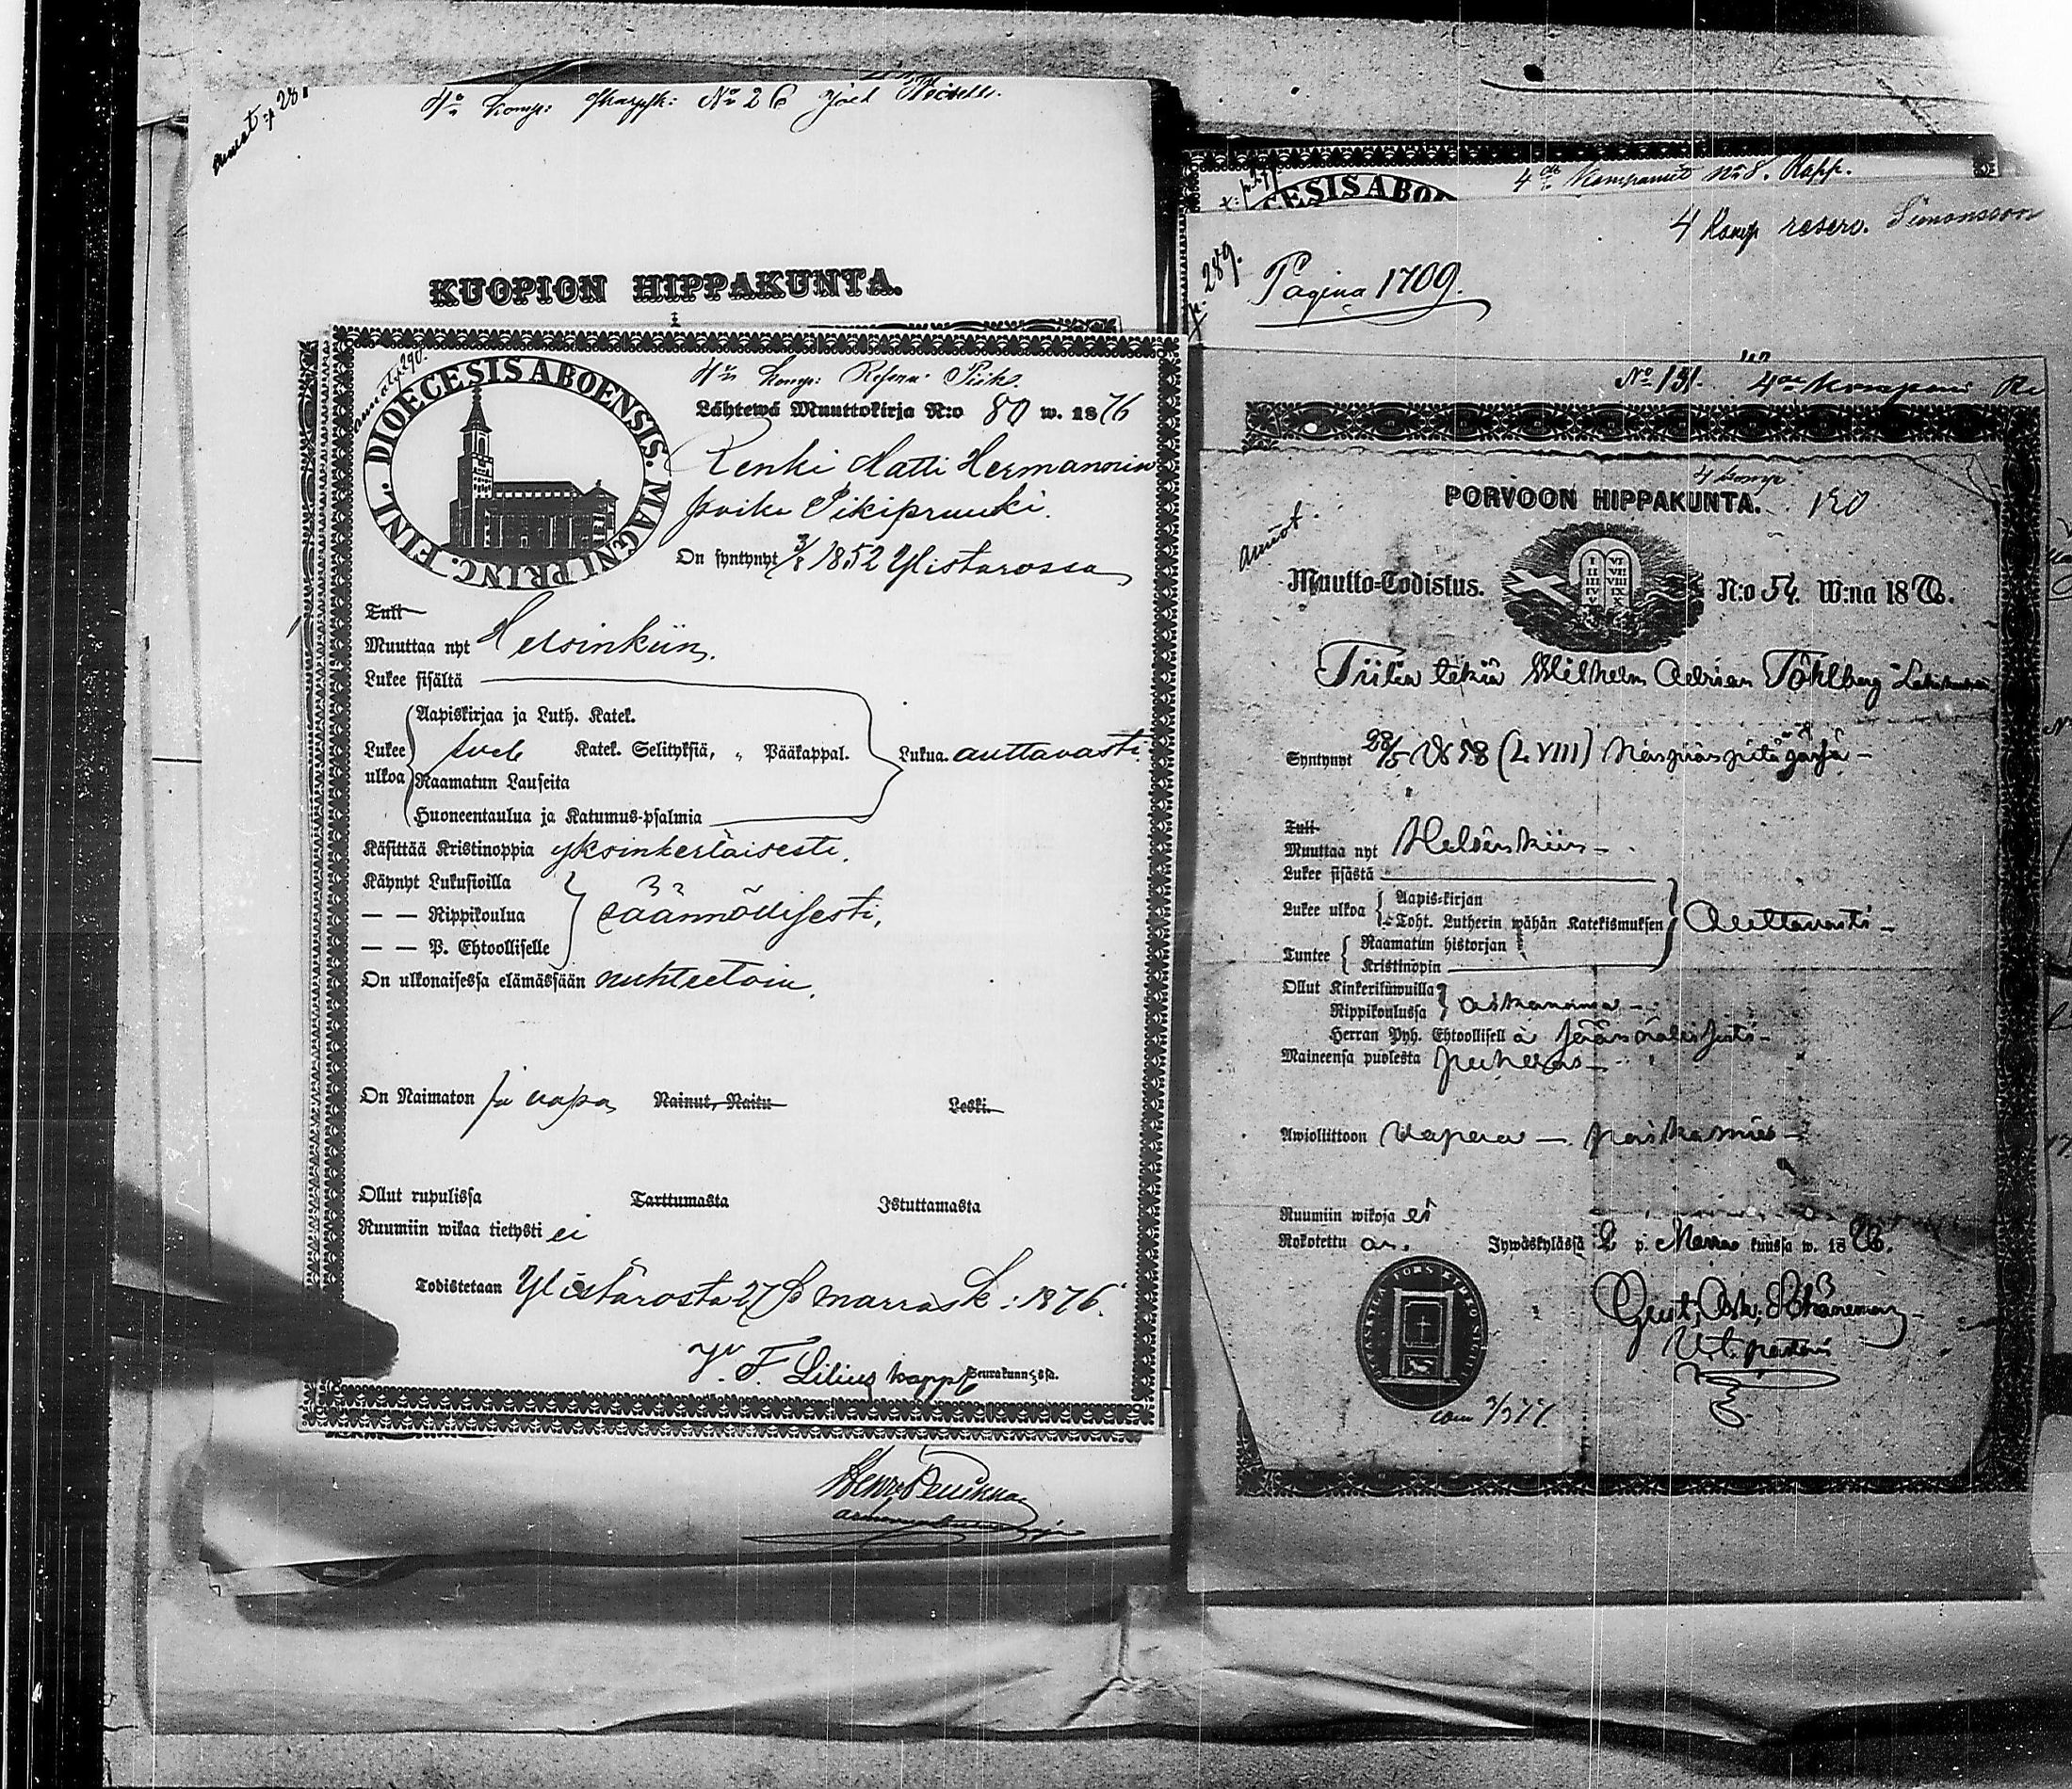 annot. p 28
4de Komp: No 26
KUOPION HIPPAKUNTA.
DIOECESIS ABOENSIS. MAGNI PRINC. FINL.
4de Komp: Reserv. Piik
Lähtewä Muuttokirja N:o 80 w. 1876
Renki Matti Hermannin
poika Pikipruuki.
On syntynyt 3/8 1852 Ylistarossa
Tuli
Muuttaa nyt Helsinkiin.
Lukee sisältä
Aapiskirjaa ja Luth. Katek.
Lukee ulkoa Katek. Selityksiä, „ Pääkappal. Lukua. auttavasti.
Raamatun Lauseita
Huoneentaulua ja Katumus-psalmia
Käsittää Kristinoppia yksinkertaisesti.
Käynyt Lukusioilla
— — Rippikoulua säännöllisesti.
— — P. Ehtoolliselle
On ulkonaisessa elämässään nuhteetoin.
On Naimaton ja vapa Nainut, Naitu Leski.
Ollut rupulissa Tarttumasta Istuttamasta
Ruumiin wikaa tietysti ei
Todistetaan Ylistarosta 27 p marrask: 1876.
F. Lilius kappl Seurakunnassa.
CESIS ABO
4de Kompaniet No 8. Rapp.
4 Komp reserv. Simonsson
p. 289.
Pagina 1709.
No 131. 4de Kompani Re
4 Komp
PORVOON HIPPAKUNTA. 120
annot.
Muutto-Todistus. N:o 54. W:na 1876.
Tiilin tekiä Wilhelm Adrian Tôhlberg
Syntynyt 28/5 1858 (LVIII)
Tuli
Muuttaa nyt Helsinkiin —
Lukee sisästä
Lukee ulkoa Aapis-kirjan
Toht. Lutherin wähän Katekismuksen Auttavasti —
Tuntee Raamatun historjan
Kristinopin
Ollut Kinkeriluwuilla
Rippikoulussa
Herran Pyh. Ehtoollisella säännöllisesti —
Maineensa puolesta puhdas —
Awioliittoon vapaa — poikamies —
Ruumiin wikoja ei
Rokotettu on. Jywäskylässä 2 p. Marras kuussa w. 1876.
V.t. pastori